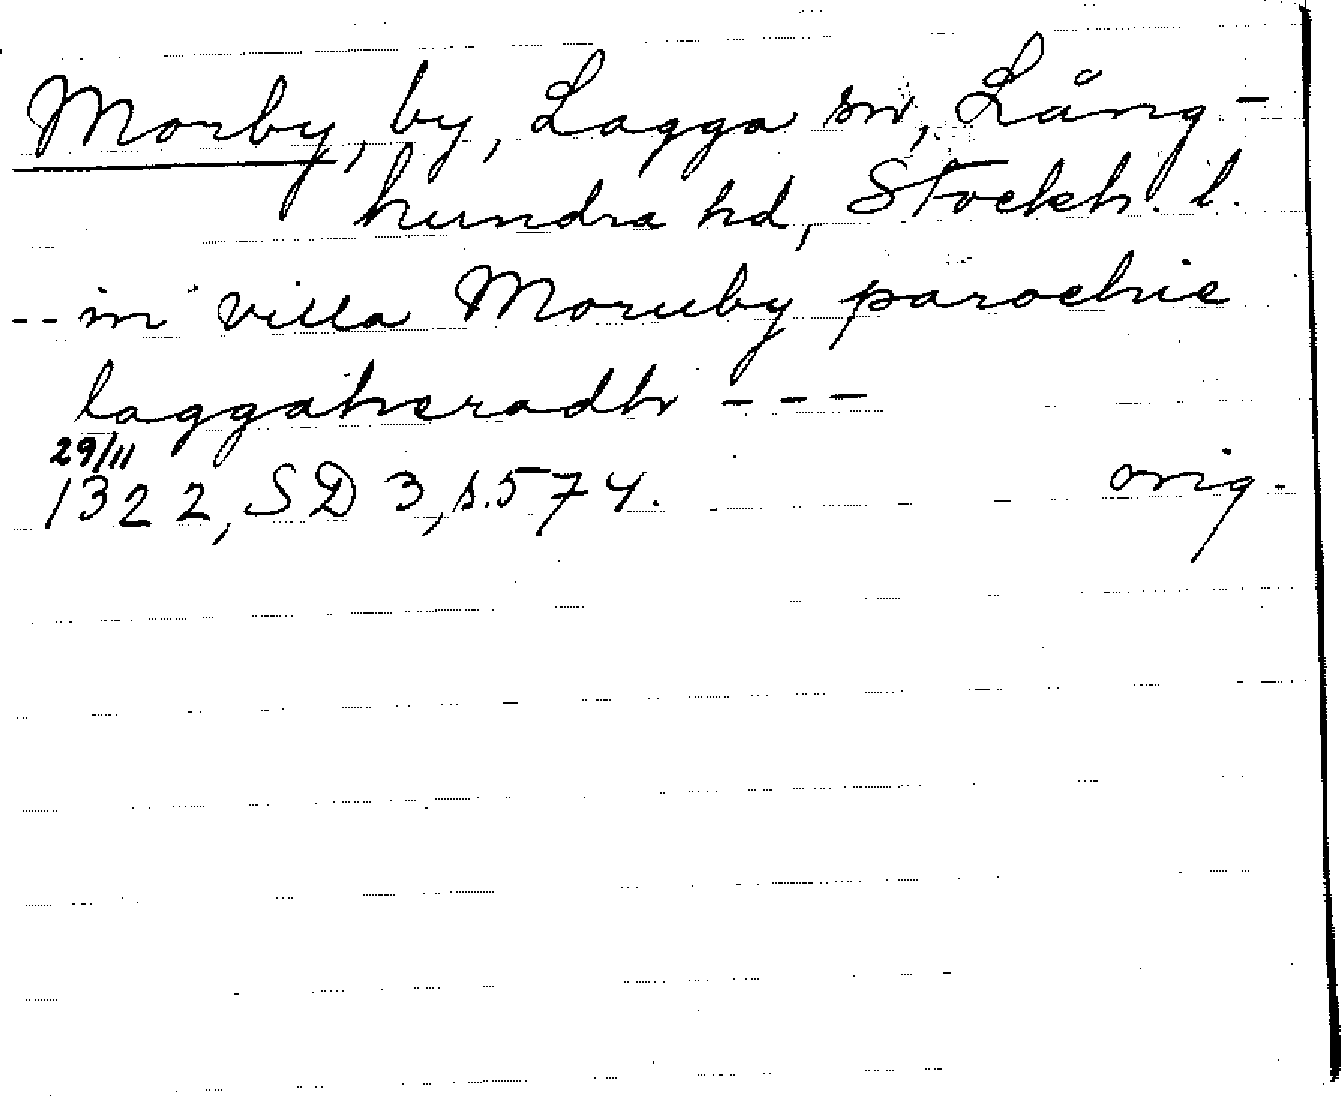 Morby, by, Lagga sn, Lång-
hundra hd, Stockh. l.
-- in villa Moruby parochie
laggaheradh ---
29/11
1322, SD 3, s. 574.
orig.